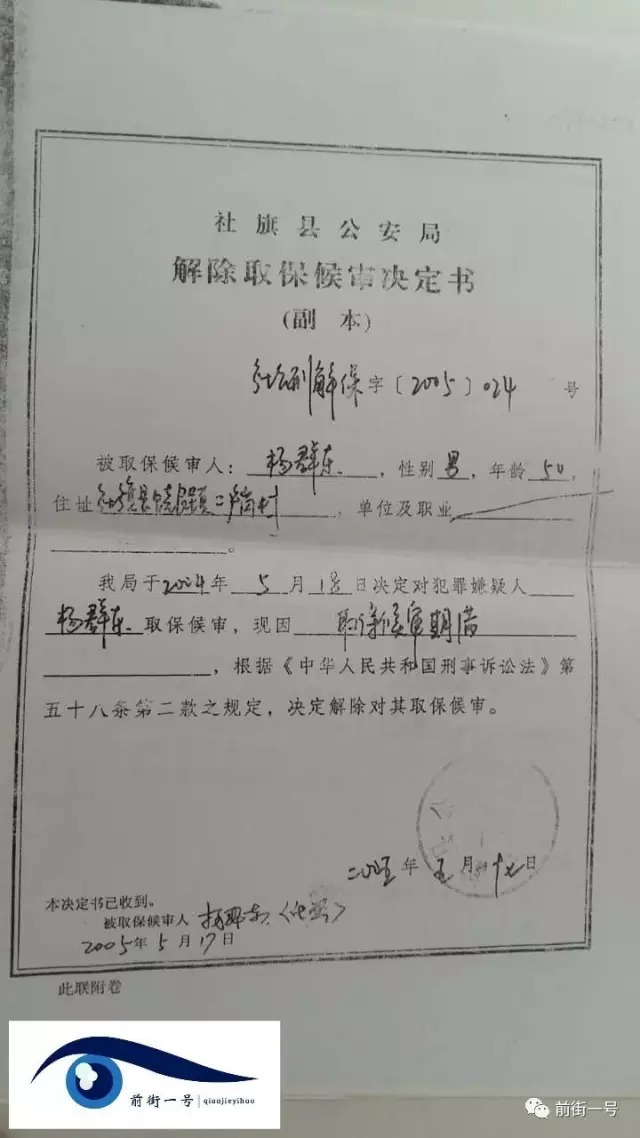 社旗县公安局
解除取保候审决定书
(副 本)
社公刑解保字〔2005〕024 号
被取保候审人:杨群东,性别男,年龄50,
住址社旗县饶良镇二 岗村,单位及职业
。
我局于2004年5月18日决定对犯罪嫌疑人
杨群东取保候审,现因取保候审期满
,根据《中华人民共和国刑事诉讼法》第
五十八条第二款之规定,决定解除对其取保候审。
二00五年五月十七日
本决定书已收到。
被取保候审人 杨群东
2005年5月17日
此联附卷
前街一号 qianjieyihao
前街一号